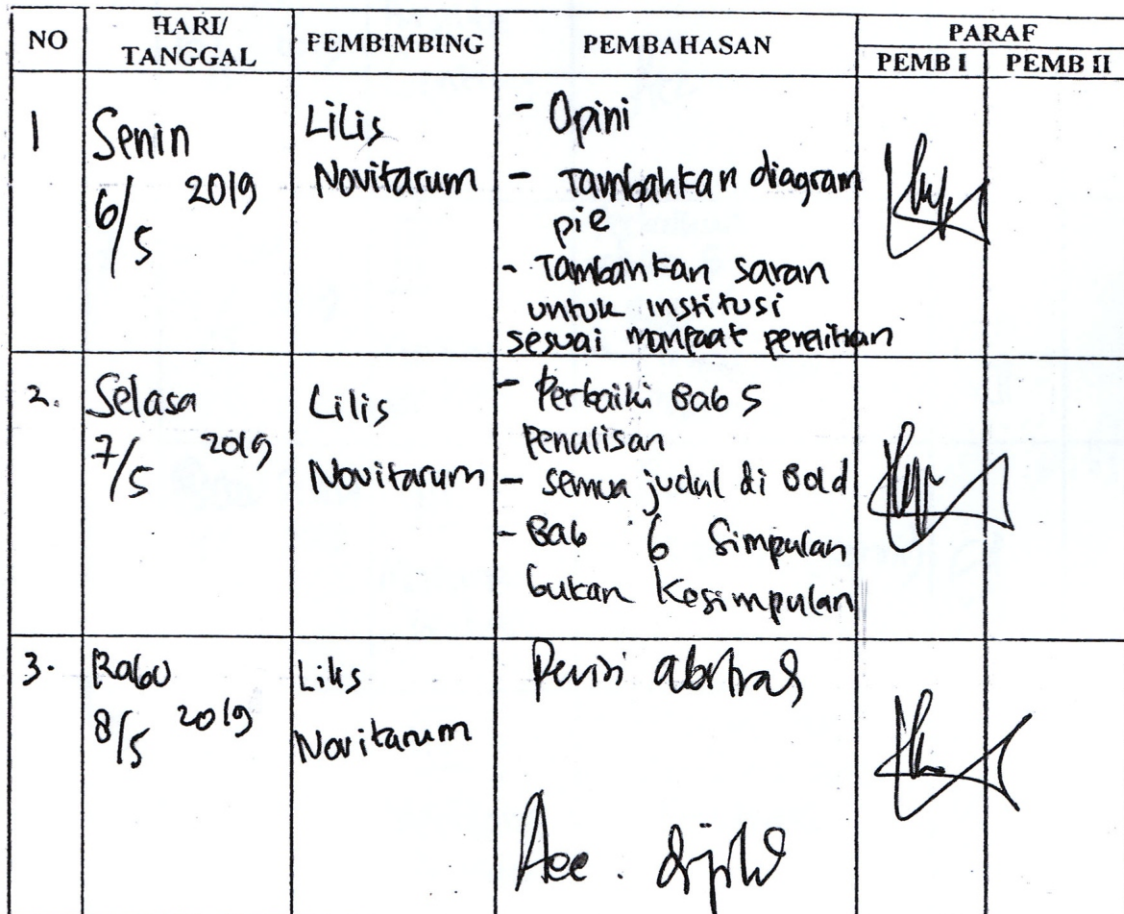 NO HARI/ TANGGAL PEMBIMBING PEMBAHASAN PARAF
PEMB I PEMB II
1 Senin 6/5 2019
Lilis
Novitarum
- Opini
- Tambahkan diagram
pie
- Tambahkan saran
untuk institusi
sesuai manfaat penelitian
2. Selasa 7/5 2019
Lilis
Novitarum
- Perbaiki Bab 5
penulisan
- semua judul di Bold
- Bab 6 Simpulan
bukan Kesimpulan
3. Rabu 8/5 2019
Lilis
Novitarum
Revisi abstrak
Acc.